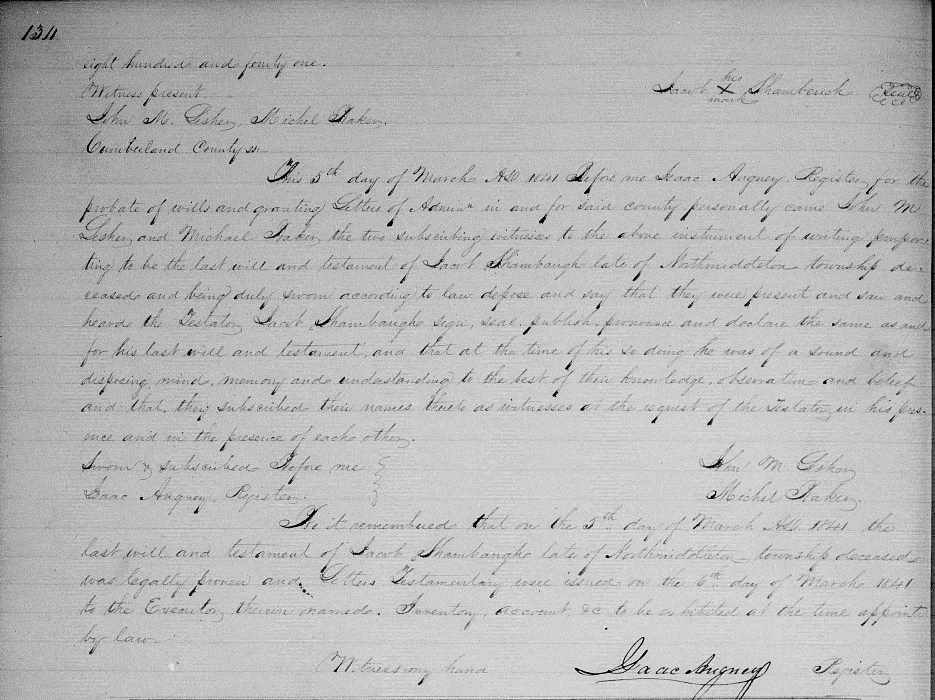 134
eight hundred and fourty one.
Witness present
Jacob his X mark Shambeuch Seal
John M. Lesher, Michel Baker.
Cumberland County ss.
This 5th day of March AD. 1841 Before me Isaac Angney Register for the
probate of wills and granting Letters of Admin in and for said county personally came John M
Lesher and Michael Baker the two subscribing witnesses to the above instrument of writing purpor-
ting to be the last will and testament of Jacob Shambaugh late of Northmiddleton township de-
ceased and being duly sworn according to law depose and say that they were present and saw and
heard the Testator Jacob Shambaugh sign, seal, publish, pronounce and declare the same as and
for his last will and testament, and that at the time of his so doing he was of a sound and
disposing mind, memory and understanding to the best of their knowledge, observation and belief
and that they subscribed their names thereto as witnesses at the request of the Testator, in his pres-
ence and in the presence of each other.
Sworn & subscribed Before me
Isaac Angney Register.
John M Lesher
Michel Baker
Be it remembered that on the 5th day of March AD. 1841 the
last will and testament of Jacob Shambaugh late of Northmiddleton township deceased
was legally proven and Letters Testamentary were issued on the 6th day of March 1841
to the Executor therein named. Inventory, account &c to be exhibited at the time appoint
by law
Witness my hand
Isaac Angney Register